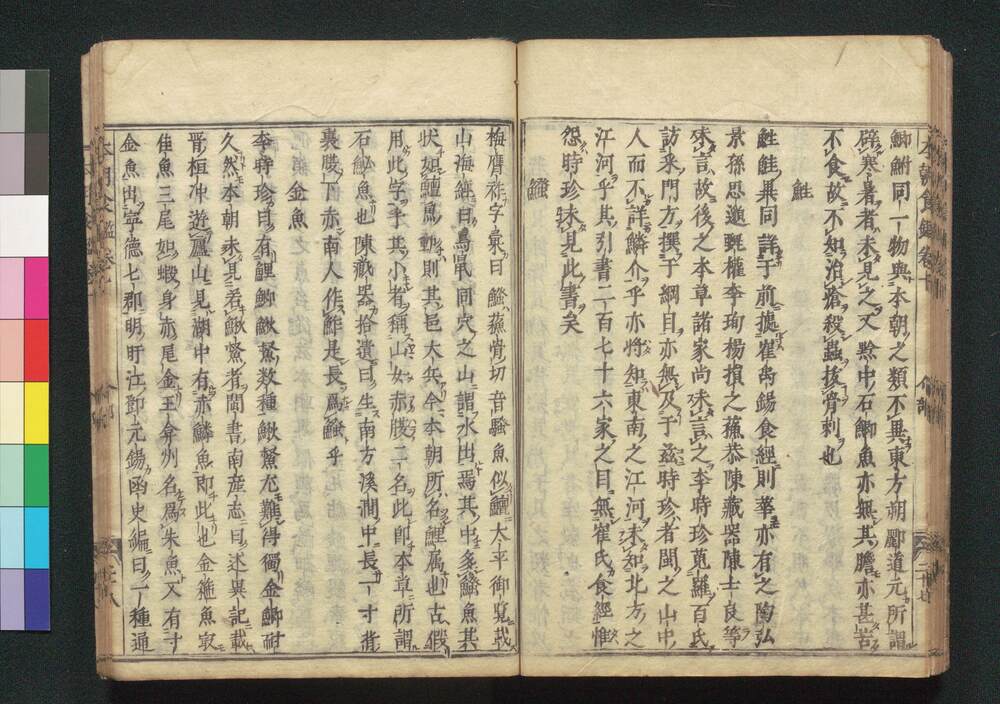 鯽鮒同一物與本朝之類不異東方朔酈道元所謂
辟寒暑者未見之又黔中石鯽魚亦無其膽亦甚苦
不食故不知治瘡殺蟲拔骨刺也
鮭
鮏鮭集同詳于前據崔禹錫食經則華亦有之陶弘
景孫思邈甄權李珣楊損之蕭恭陳藏器陳士良等
未言故後之本草諸家尚未言之李時珍蒐羅百氏
訪采四方撰于綱目亦無及于茲時珍者閩之山中
人而不詳鱗介乎亦將知東南之江河未知北方之
江河乎其引書二百七十六家之目無崔氏食經惟
怨時珍未見此書矣
鱃
梅膺祚字彙曰鱃蘇骨切音騷魚似鱣太平御覽載
山海經曰鳥鼠同穴之山謂水出焉其中多鱃魚其
狀如鱣魚動則其邑大兵今本朝所名鯉屬也古假
用此字乎其小者稱山女赤腹二名此即本草所謂
石鮅魚也陳藏器拾遺曰生南方溪澗中長一寸背
裏腹下赤南人作鮓是長爲鱃乎
金魚
李時珍曰有鯉鯽鰍䱗数種鰍䱗尤難得獨金鯽耐
久然本朝未見若鰍䱗者閩書南産志曰述異記載
晋桓冲遊廬山見湖中有赤鱗魚即此也金箍魚取
佳魚三尾如蝦身赤尾金王弇州名爲朱魚又有寸
金魚出寧德七郡明旴江鄧元錫函史編曰一種遍
本朝食鑑卷十